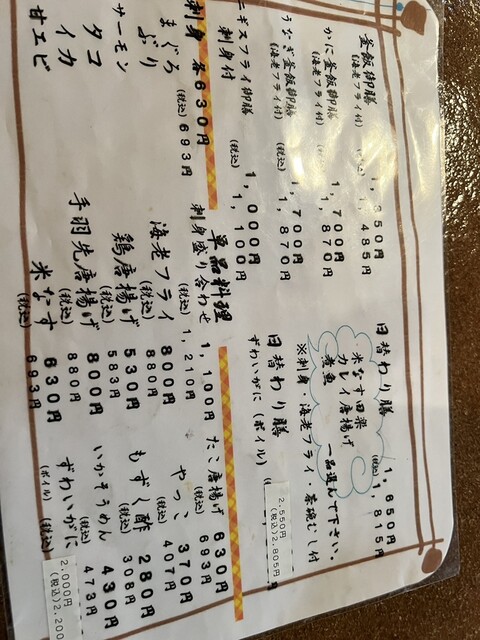 釜飯御膳 1,350円
(海老フライ付) (税込) 1,485円
かに釜飯御膳 1,700円
(海老フライ付) (税込) 1,870円
うなぎ釜飯御膳 1,700円
(海老フライ付) (税込) 1,870円
ニギスフライ御膳 1,000円
刺身付 (税込) 1,100円
日替わり膳 1,650円
(税込) 1,815円
米なす田楽
カレイ唐揚げ
煮魚 一品選んで下さい。
※刺身・海老フライ・茶碗むし付
日替わり膳 2,550円
ずわいがに(ボイル) (税込)2,805円
刺身 各630円
(税込) 693円
まぐろ
ぶり
サーモン
タコ
イカ
甘エビ
単品料理
刺身盛り合わせ 1,100円
(税込) 1,210円
海老フライ 800円
(税込) 880円
鶏唐揚げ 530円
(税込) 583円
手羽先唐揚げ 800円
(税込) 880円
米なす 630円
(税込) 693円
たこ唐揚げ 630円
(税込) 693円
やっこ 370円
(税込) 407円
もずく酢 280円
(税込) 308円
いかそうめん 430円
(税込) 473円
ずわいがに 2,000円
(ボイル) (税込)2,200